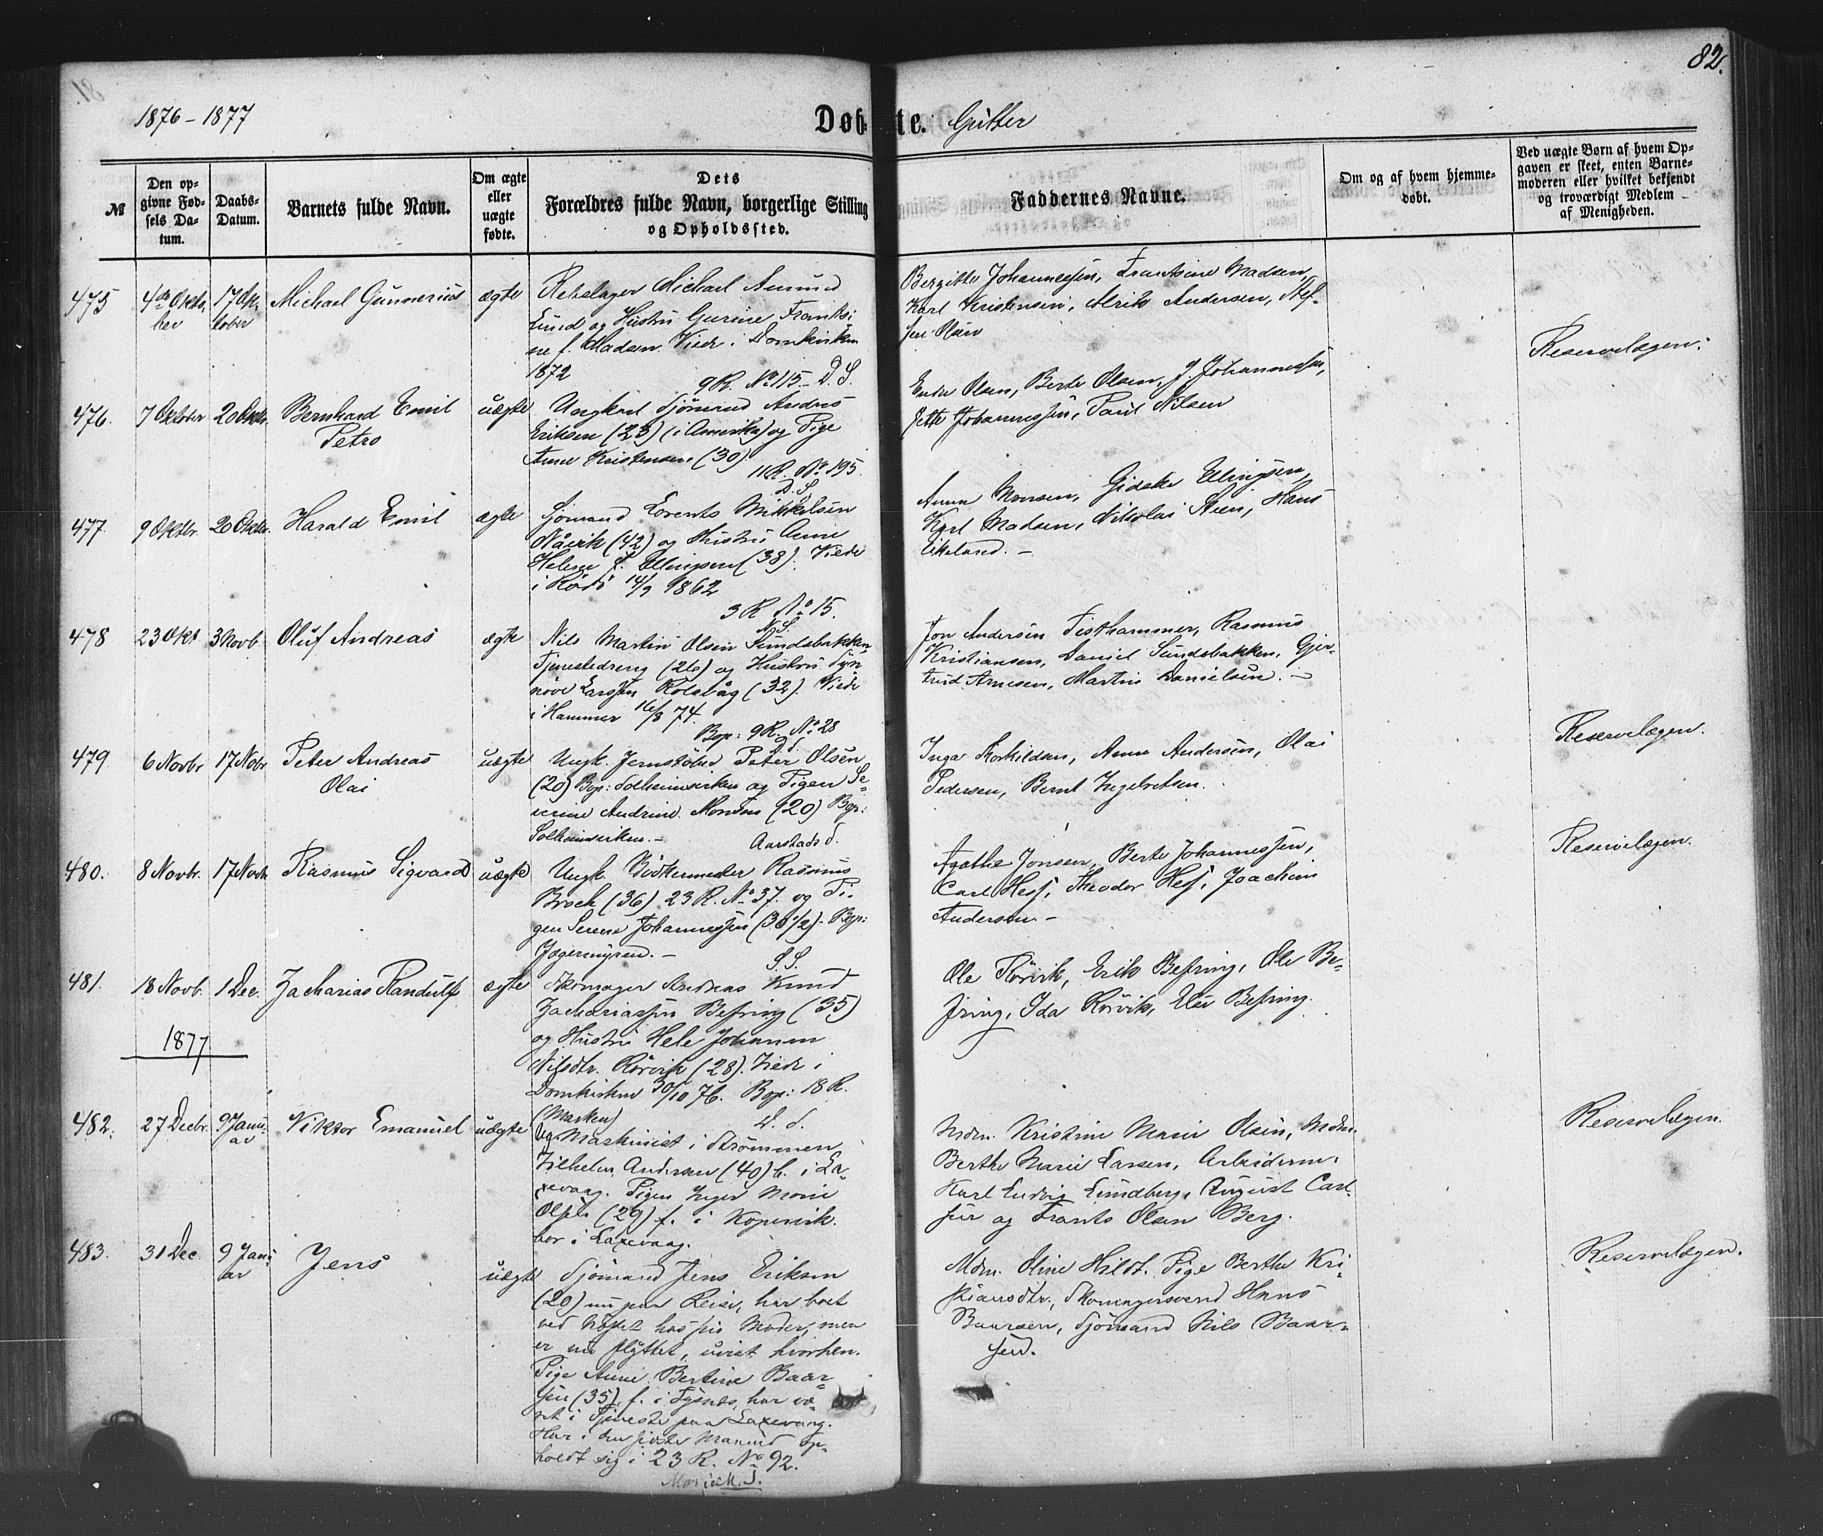 82.
1876 - 1877
Døbte. Gutter
№
Den opgivne Fødsels Datum.
Daabs-Datum.
Barnets fulde Navn.
Om ægte eller uægte fødte.
Dets Forældres fulde Navn, borgerlige Stilling og Opholdssted.
Faddernes Navne.
Om og af hvem hjemmedøbt.
Ved uægte Børn af hvem Opgaven er skeet, enten Barnemoderen eller hvilket bekjendt og troværdigt Medlem af Menigheden.
475 4de Oktober 17 Oktober Michael Gunnerius ægte
Rebslager Michael Amund
Lund og Hustru Gurine Frantsi
ne f. Madsen. Viede i Domkirken
1872
9 R. No 115 - D. S.
Bergitte Johannessen, Frantsine Madsen,
Karl Kristensen, Alrik Andersen,
sen Olsen
476. 7 Oktober 20 Oktbr. Bernhard Emil Petro uægte
Ungkarl Sjömand Andreas
Eriksen (23) (i Amerika) og Pige
Anne Kristensen (30)
11 R. No 195.
D. S.
Endre Olsen, Berte Olsen, J. Johannessen,
Jette Johannessen, Paul Nilsen
Reservelægen.
477. 9 Oktbr. 20 Oktbr. Harald Emil ægte
Sjömand Lorents Mikkelsen
Nåvik (42) og Hustru Anne
Helene f. Ellingsen (38). Viede
i Rödö 14/9 1862
3 R No 15.
N. S.
Anna Monsen, Gidske Ellingsen,
Karl Madsen, Nikolai Steen, Hans
Eikeland. -
478 23 Okt 3 Novb. Oluf Andreas ægte
Nils Martin Olsen Sundsbakken
Tjenestedreng (26) og Hustru Syn
növe Larssen Kolsvåg (32). Viede
i Hammer 16/8 74.
Bop: 9 R. No 28
D. S.
Jon Andersen Tisthammer, Rasmus
Kristiansen, Daniel Sundsbakken, Gjer-
trud Arnesen, Martin Danielsen. -
479. 6 Novbr 17 Novbr Peter Andreas Olai uægte
Ungk. Jernstöber Peter Olsen
(20) Bop: Solheimsviken og Pigen Se-
verine Andrine Monsen (20) Bop:
Solheimsviken. - Aarstads d.
Inga Torkildsen, Anne Andersen, Olai
Pedersen, Bernt Ingebretsen.
Reservelægen.
480. 8 Novbr. 17 Novbr. Rasmus Sigvard uægte
Ungk. Bödkermester Rasmus
Broch (36) 23 R. No 37. og Pi-
gen Serene Johannessen (30 1/2). Bop:
Jægermyren. - S. S.
Agathe Jonsen, Berte Johannessen,
Carl Hess, Theodor Hess, Joachim
Andersen. -
Reservelægen.
481. 18 Novb. 1 Dec. Zacharias Randulf ægte
Skomager Andreas Knud
Zachariassen Befring (35)
og Hustru Hele Johanne
Nilsdtr. Rörvik (28). Viede i
Domkirken 30/10 76. Bop: 18 R.
(Marken) D. S.
Ole Rörvik, Erik Befring, Ole Be-
fring, Ida Rörvik, Befring.
1877
482. 27 Decbr. 9 Januar Viktor Emanuel uægte
Maskinist i Strømmen
Vilhelm Andersen (40) b. i La-
xevaag. Pigen Inger Marie
Olsdtr (29) f. i Kopervik.
bor i Laxevaag.
Mdm. Kristine Marie Olsen, Mdm.
Berthe Marie Larsen, Arbeiderne
Karl Ludvig Lundberg, August Carl-
sen og Frants Olsen Berg.
Reservelægen.
483. 31 Dec. 9 Januar Jens uægte
Sjömand Jens Eriksen
(20) nu paa Reise, har boet
ved Nöstet hos sin Moder, men
er nu flyttet, uvist hvorhen.
Pige Anne Bertine Baar-
sen (35) f. i Tysnes, har væ-
ret i Tjeneste paa Laxevaag.
Har i den sidste Maaned op-
holdt sig i 23 R. No 92.
Mdm. Oline Hildt. Pige Berthe Kri-
stiansdtr., Skomagersvend Hans
Baarsen, Sjömand Nils Baar-
sen.
Reservelægen.